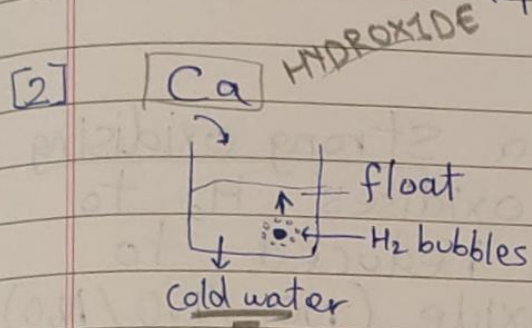 HYDROXIDE
[2] Ca
float
H2 bubbles
cold water